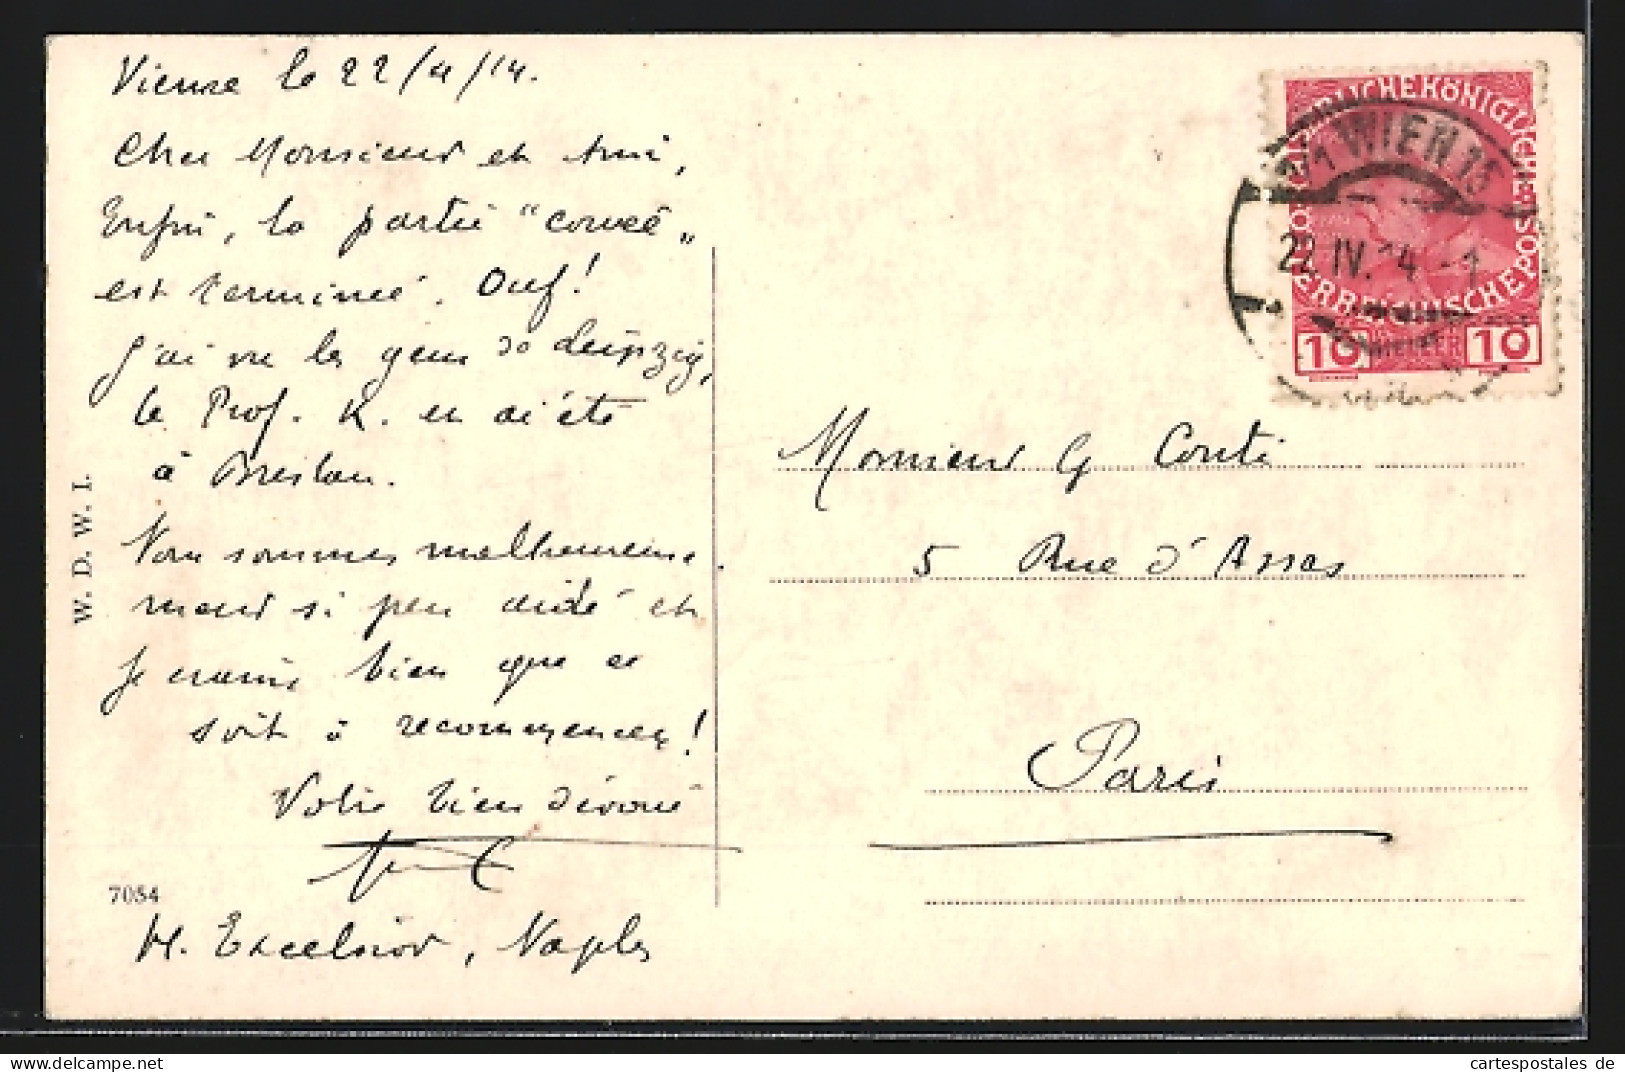 Vienne le 22/4/14.
Cher Monsieur et Ami,
Enfin, la partie "corvée"
est terminée. Ouf!
J'ai vu les gens de Leipzig,
le Prof. K. en a été
à Breslau.
Nous sommes malheureuse
ment si peu aidé et
je crains bien que ce
soit à recommencer!
Votre bien dévoué
H. Excelsior, Naples
W. D. W. I.
7054
KAISERLICHE KÖNIGLICHE
ÖSTERREICHISCHE POST
10 HELLER 10
1/1 WIEN 15
22 IV. 14 - 1
Monsieur G Conti
5 Rue d'Assas
Paris
cartespostales de